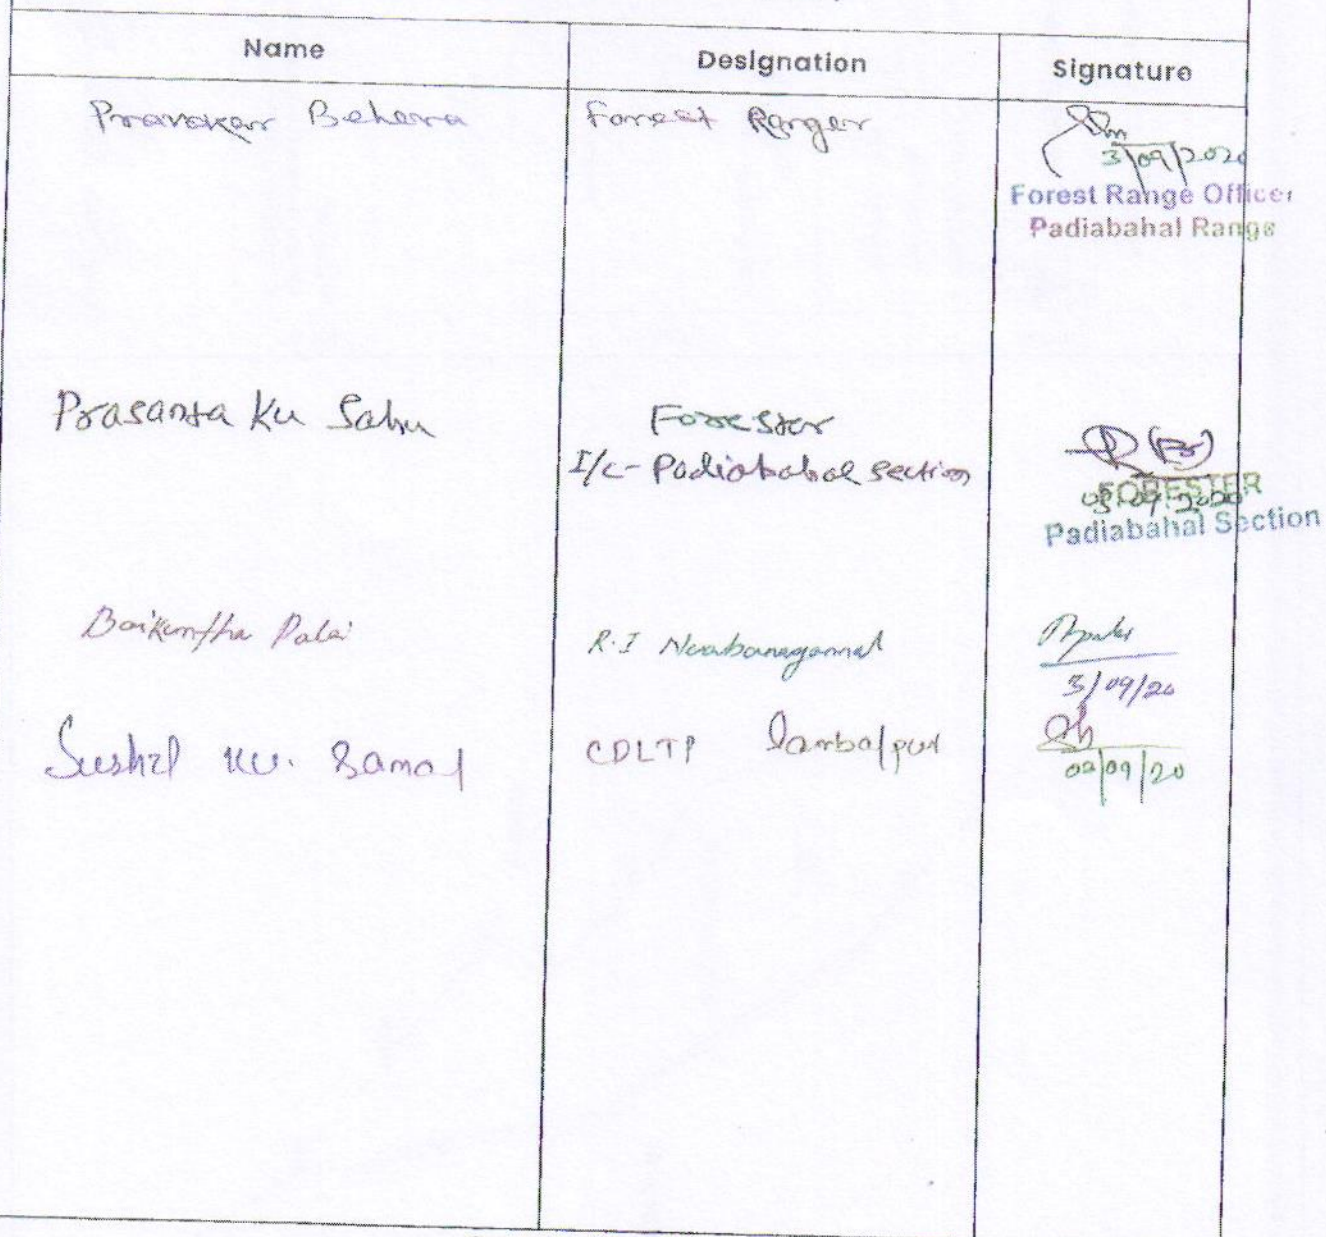 Name Designation Signature
Pravakar Behera Forest Ranger
3/09/2020
Forest Range Officer
Padiabahal Range
Prasanta Ku Sahu Forester
I/c- Padiabahal Section
03.09.2020
FORESTER
Padiabahal Section
Baikuntha Palai R.I
3/09/20
Sushil Ku. Samal CDLTP Sambalpur
/09/20